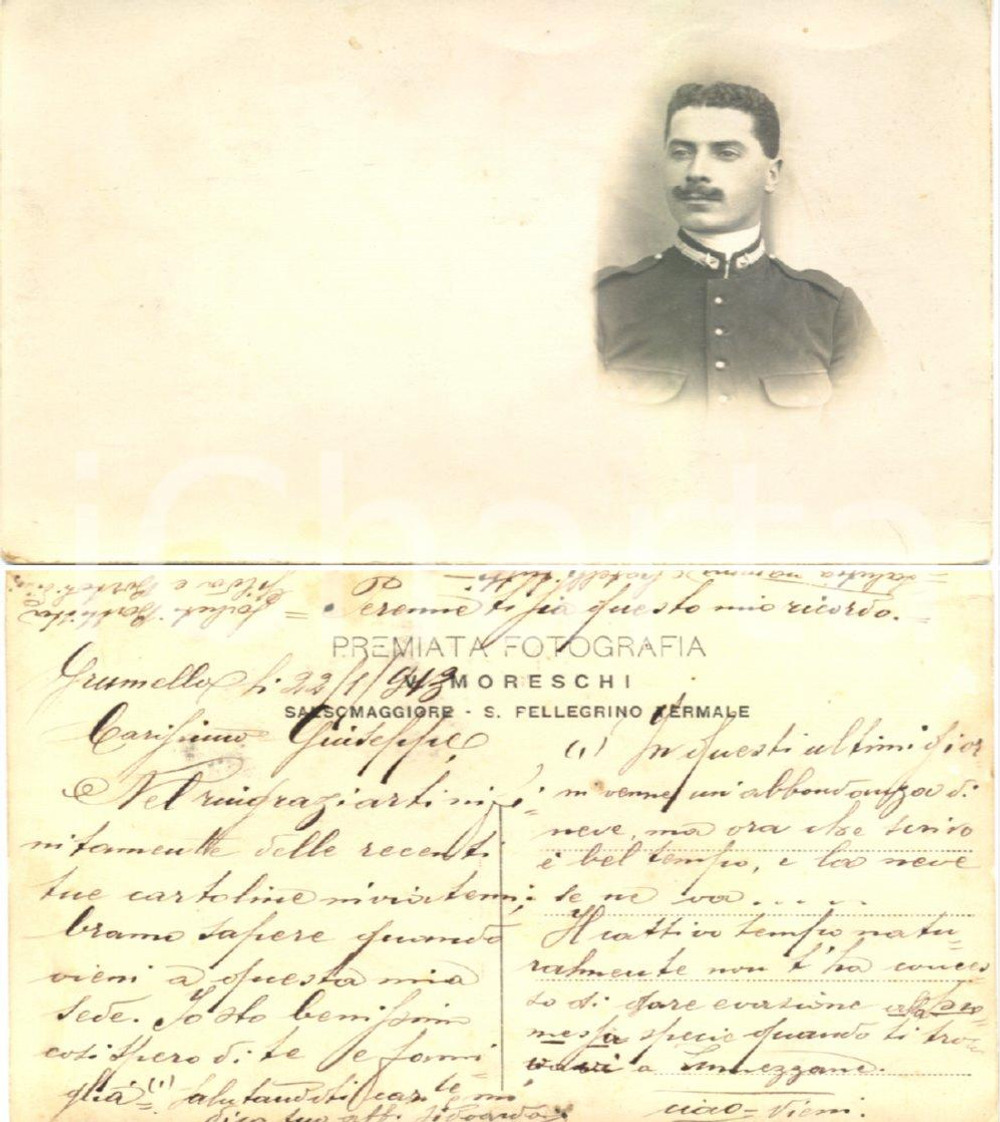 iCharta
Perenne ti sia questo mio ricordo.
PREMIATA FOTOGRAFIA
V. MORESCHI
SALSOMAGGIORE - S. FELLEGRINO TERMALE
Grumello li 22/1/913
Carissimo Giuseppe
Nel ringraziarti infi=
nitamente delle recenti
tue cartoline inviatemi,
bramo sapere quando
vieni a questa mia
sede. Io sto benissimo
così spero di te e fami=
glia (1) salutandoti car.te mi
dico tuo aff.
(1) In questi ultimi gior
ni venne un'abbondanza di
neve, ma ora che scrivo
è bel tempo, e la neve
se ne va.....
Il cattivo tempo natu=
ralmente non t'ha conces
so di fare evasione alla pro=
messa specie quando ti tro=
vavi a Lumezzane.
ciao = vieni.
saluta mamma e fratelli tutti
Saluti Battista